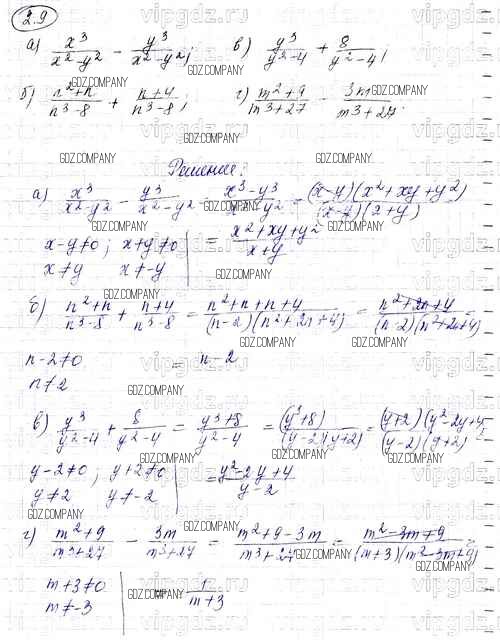 2.9
а) x³/(x²-y²) - y³/(x²-y²); в) y³/(y²-4) + 8/(y²-4);
б) (n²+n)/(n³-8) + (n+4)/(n³-8); г) (m²+9)/(m³+27) - 3m/(m³+27).
Решение:
а) x³/(x²-y²) - y³/(x²-y²) = (x³-y³)/(x²-y²) = (x-y)(x²+xy+y²)/(x-y)(x+y)
x-y≠0; x+y≠0 | = (x²+xy+y²)/(x+y)
x≠y x≠-y
б) (n²+n)/(n³-8) + (n+4)/(n³-8) = (n²+n+n+4)/(n-2)(n²+2n+4) = (n²+2n+4)/(n-2)(n²+2n+4) =
n-2≠0 = n-2
n≠2
в) y³/(y²-4) + 8/(y²-4) = (y³+8)/(y²-4) = (y³+8)/(y-2)(y+2) = (y+2)(y²-2y+4)/(y-2)(y+2) =
y-2≠0; y+2≠0 | = (y²-2y+4)/(y-2)
y≠2 y≠-2
г) (m²+9)/(m³+27) - 3m/(m³+27) = (m²+9-3m)/(m³+27) = (m²-3m+9)/(m+3)(m²-3m+9) =
m+3≠0 | = 1/(m+3)
m≠-3
GDZ.COMPANY
vipgdz.ru